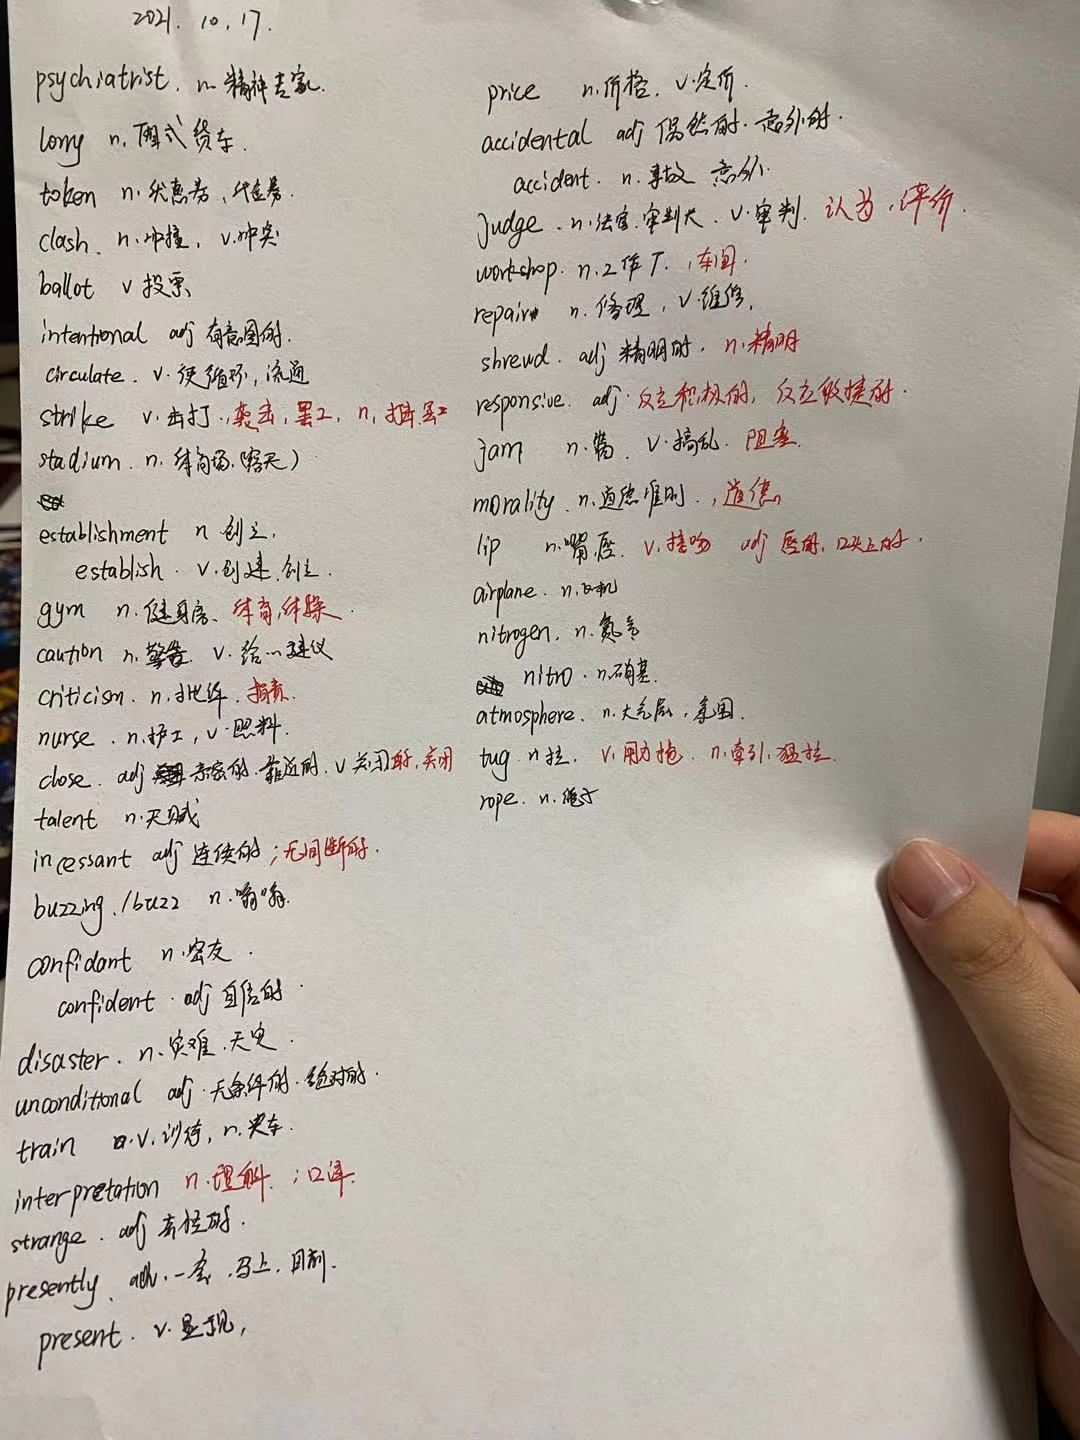 2021. 10. 17.
psychiatrist. n. 精神专家.
lorry n. 厢式货车.
token n. 优惠券, 代金券.
clash. n. 冲撞, v. 冲突
ballot v 投票
intentional adj 有意图的.
circulate. v. 使循环, 流通
strike v. 击打, 袭击, 罢工, n, 打击 罢工
stadium. n. 体育场. (露天)
establishment n 创立.
establish. v. 创建. 创立.
gym n. 健身房、体育, 体操.
caution n. 警告. v. 给…建议
criticism. n. 批评. 指责.
nurse. n. 护士, v. 照料.
close. adj 亲密的. 靠近的. v 关闭的, 关闭
talent n. 天赋
incessant adj 连续的; 无间断的.
buzzing. / buzz n. 嗡嗡.
confidant n. 密友.
confident. adj 自信的.
disaster. n. 灾难. 天灾.
unconditional adj. 无条件的. 绝对的.
train v. 训待, n. 火车.
interpretation n. 理解. ; 口译.
strange. adj 奇怪的.
presently. adv. 一会. 马上. 目前.
present. v. 显现,
price n. 价格. v. 定价.
accidental adj 偶然的. 意外的.
accident. n. 事故 意外.
judge. n. 法官. 审判犬. v. 审判. 认为, 评价.
workshop. n. 工作厂, 车间.
repair n. 修理, v. 维修.
shrewd. adj 精明的. n. 精明
responsive. adj. 反应积极的, 反应敏捷的.
jam n. 酱. v. 搞乱. 阻塞.
morality. n. 道德准则. , 道德.
lip n. 嘴唇. v. 接吻 adj 唇的. 口头上的.
airplane. n. 飞机
nitrogen. n. 氮气
nitro. n. 硝基.
atmosphere. n. 大气层, 氛围.
tug n 拉. v. 用力拖. n. 牵引. 猛拉.
rope. n. 绳子